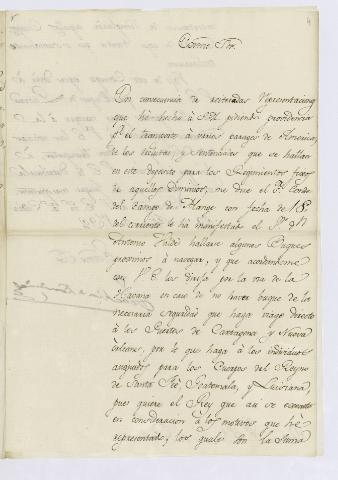 4
Exmo. Sor.
Por consecuencia de reiteradas Representaciones
que he hecho à S. M. pidiendo providencia
pa. el transporte à varios parages de America,
de los reclutas y sentenciados que se hallan
en este deposito para los Regimientos fixos
de aquellos Dominios, me dice el Sr. Conde
del Campo de Alange con fecha de 18
del corriente le ha manifestado el Sr. Dn.
Antonio Valdés hallarse algunos Buques
proximos à navegar, y que acordandome
con V. E. los dirija por la via de la
Havana en caso de no haver buque de la
necesaria seguridad que haga viage directo
à los Puertos de Cartagena y Nueva
Orleans, por lo que haga à los individuos
asignados para los Cuerpos del Reyno
de Santa Fé, Goatemala, y Luisiana,
pues quiere el Rey que asi se execute
en consideracion à los motivos que hé
representado; los quales son la suma